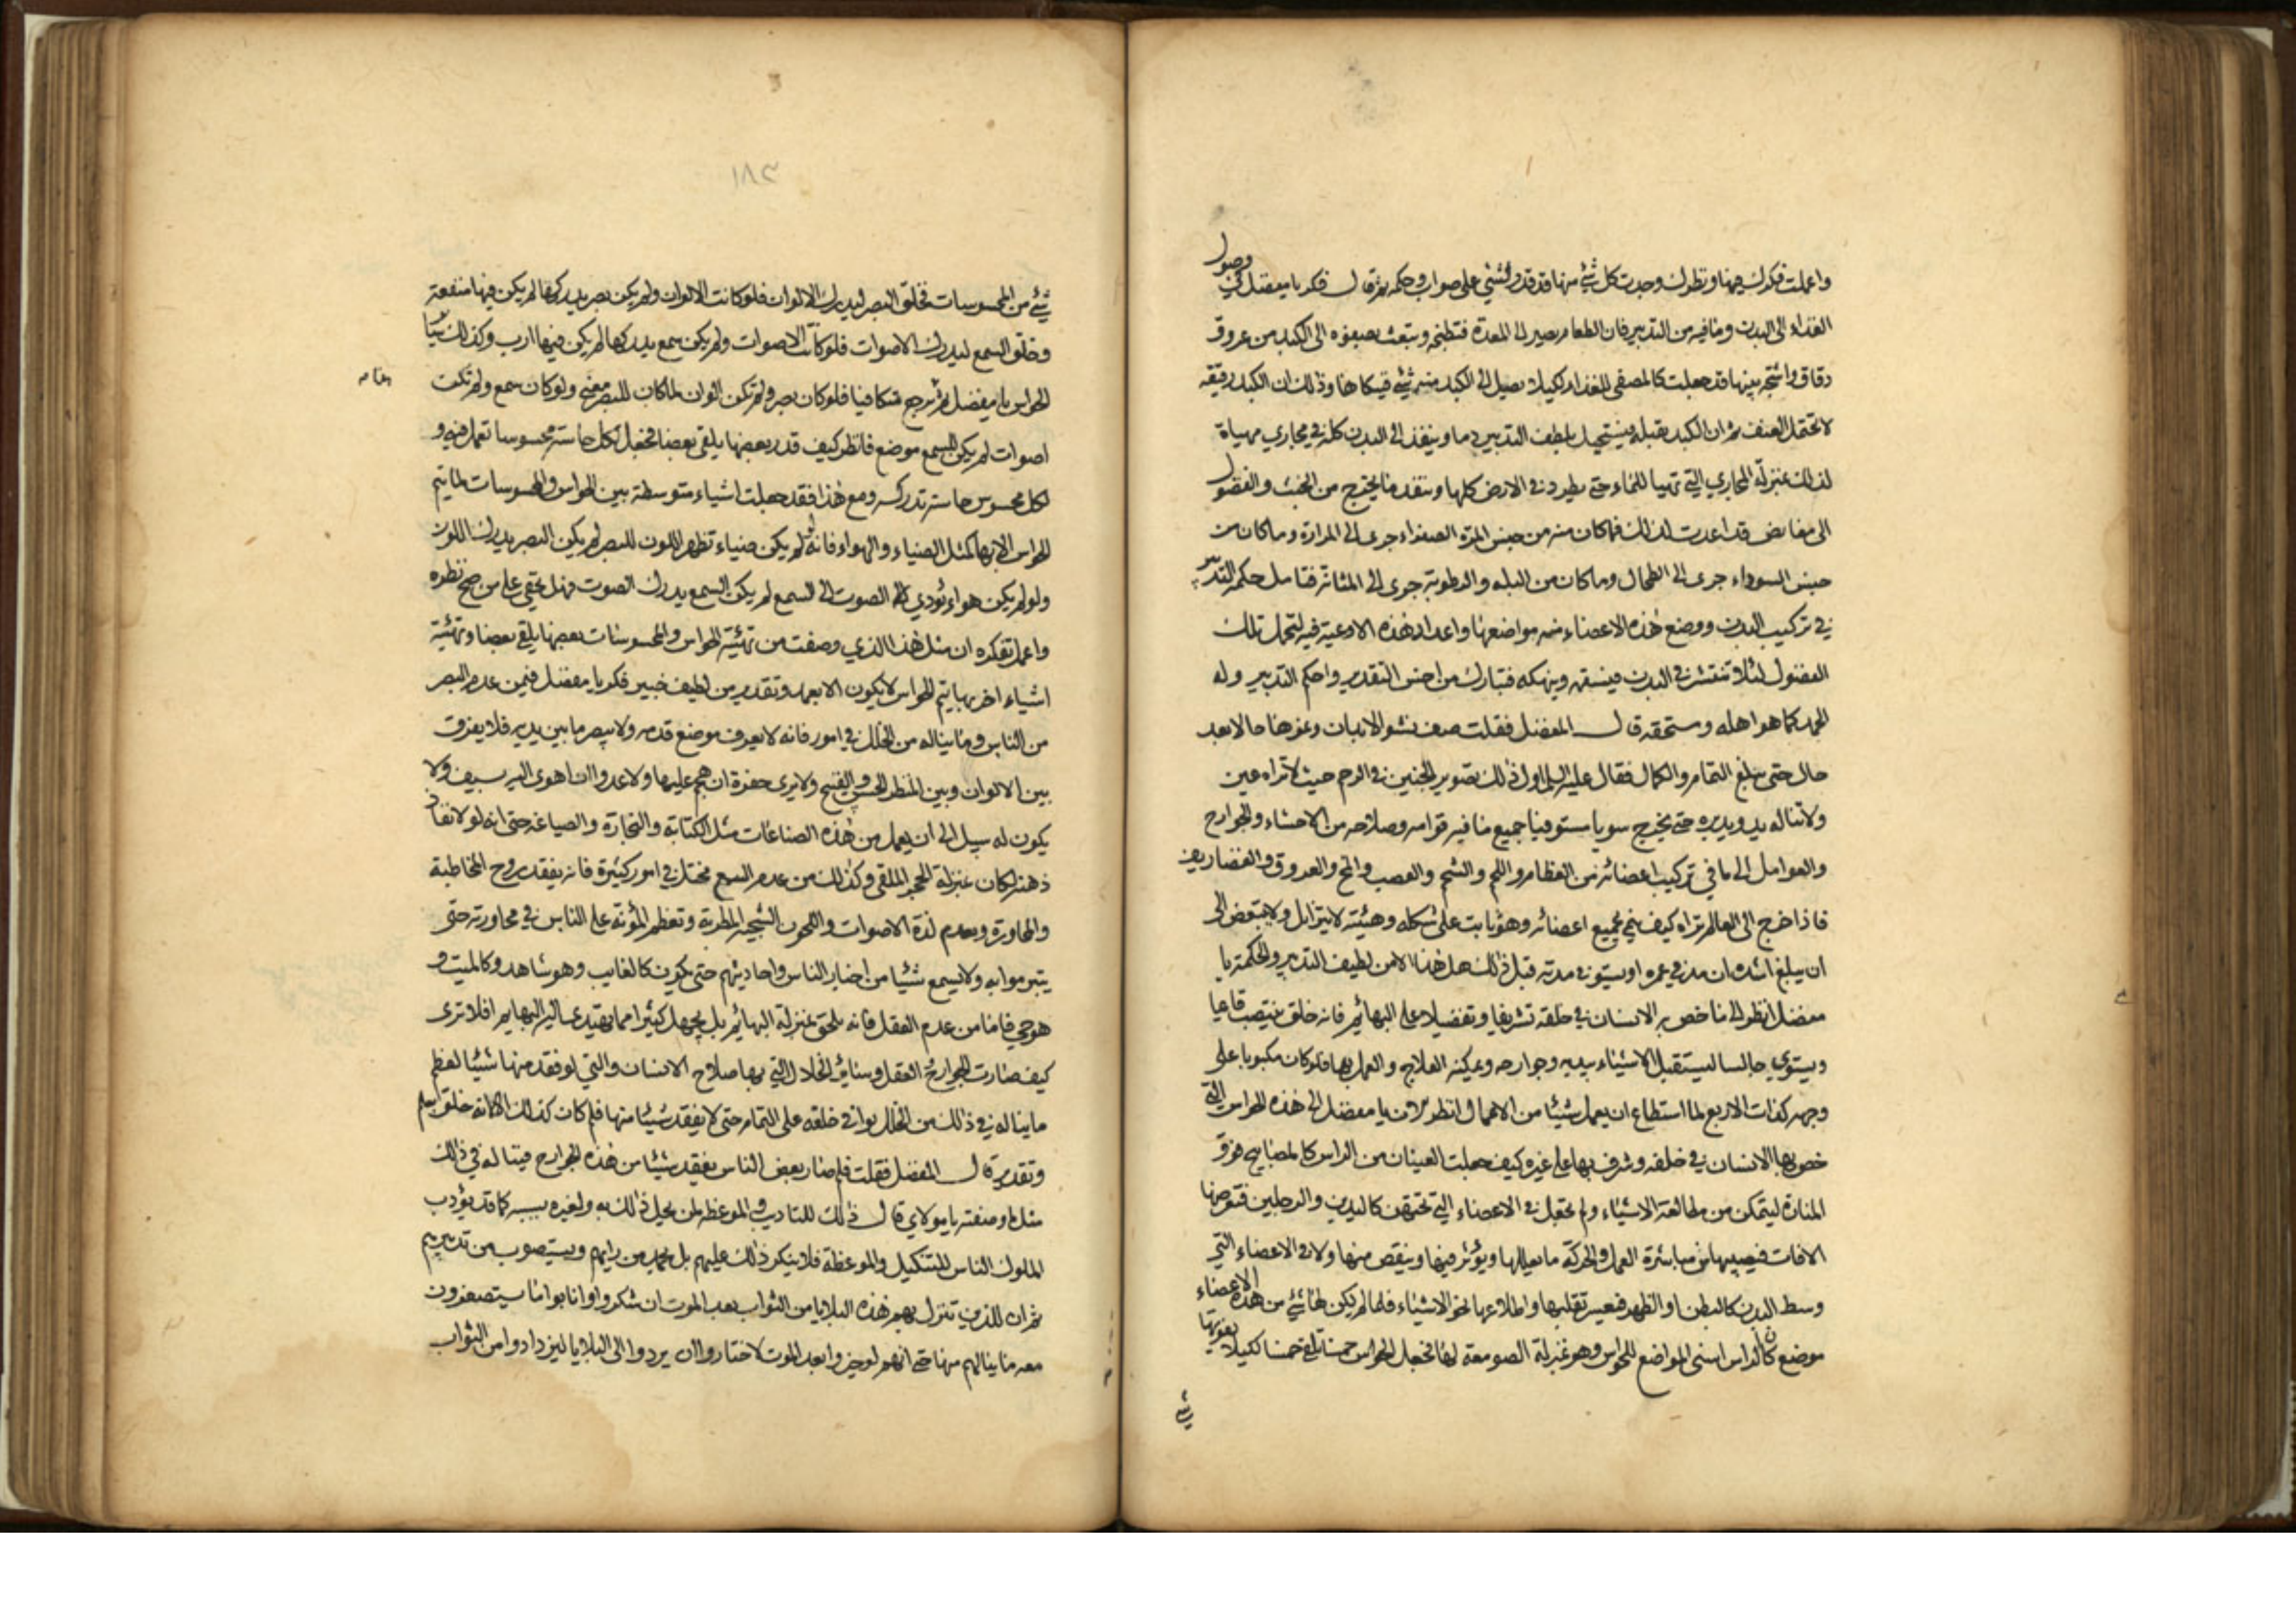 واعملت فكرك فيها ونظرك وجدت كل شئ منها قد قدر لشئ على صواب وحكمة ثم قال فكر يا مفضل في وصول
الغذاء الى البدن وما فيه من التدبير فان الطعام يصير الى المعدة فتطبخه وتبعث بصفوه الى الكبد من عروق
دقاق واشجة بينها قد جعلت كالمصفى للغذاء لكيلا يصل الى الكبد منه شئ فينكاها وذلك ان الكبد رقيقة
لا تحتمل العنف ثم ان الكبد تقبله فيستحيل بلطف التدبير دما وينفذ الى البدن كله في مجاري مهياة
لذلك بمنزلة المجاري التي تهيا للماء حتى يطرد في الارض كلها وينفذ ما يخرج من الخبث والفضول
الى مفايض قد اعدت لذلك فما كان منه من جنس المرة الصفراء جرى الى المرارة وما كان من
جنس السوداء جرى الى الطحال وما كان من البلة والرطوبة جرى الى المثانة فتامل حكمة التدبير
في تركيب البدن ووضع هذه الاعضاء منه مواضعها واعداد هذه الاوعية فيه لتحمل تلك
الفضول لئلا تنتشر في البدن فتسقمه وتنهكه فتبارك من احسن التقدير واحكم التدبير وله
الحمد كما هو اهله ومستحقه قال المفضل فقلت صف نشو الابدان ونموها حالا بعد
حال حتى تبلغ التمام والكمال فقال عليه السلام اول ذلك تصوير الجنين في الرحم حيث لا تراه عين
ولا تناله يد ويدبره حتى يخرج سويا مستوفيا جميع ما فيه قوامه وصلاحه من الاحشاء والجوارح
والعوامل الى ما في تركيب اعضائه من العظام واللحم والشحم والعصب والمخ والعروق والغضاريف
فاذا خرج الى العالم تراه كيف ينمي بجميع اعضائه وهو ثابت على شكله وهيئته لا يتزايل ولا ينقص الى
ان يبلغ اشده ان مد في عمره او يستوفي مدته قبل ذلك هل هذا الا من لطيف التدبير والحكمة يا
مفضل انظر الى ما خص به الانسان في خلقه تشريفا وتفضيلا على البهائم فانه خلق ينتصب قائما
ويستوي جالسا ليستقبل الاشياء بيديه وجوارحه ويمكنه العلاج والعمل بها فلو كان مكبوبا على
وجهه كذات الاربع لما استطاع ان يعمل شيئا من الاعمال انظر الان يا مفضل الى هذه الحواس التي
خص بها الانسان في خلقه وشرف بها على غيره كيف جعلت العينان من الراس كالمصابيح فوق
المنارة ليتمكن من مطالعة الاشياء ولم تجعل في الاعضاء التي تحتهن كاليدين والرجلين فتعرضها
الافات فيصيبها من مباشرة العمل والحركة ما يعللها ويؤثر فيها وينقص منها ولا في الاعضاء التي
وسط البدن كالبطن او الظهر فيعسر تقلبها واطلاعها نحو الاشياء فلما لم يكن لها شئ من هذه الاعضاء
موضع كان الراس اسنى المواضع للحواس وهو بمنزلة الصومعة لها فجعل الحواس خمسا تلقى خمسا لكيلا يفوتها
شئ
١٨٣
شئ من المحسوسات فخلق البصر ليدرك الالوان فلو كانت الالوان ولم يكن بصر يدركها لم يكن فيها منفعة
وخلق السمع ليدرك الاصوات فلو كانت الاصوات ولم يكن سمع يدركها لم يكن فيها ارب وكذلك
الحواس يا مفضل ثم يرجع متكافيا فلو كان بصر ولم تكن الوان لما كان للبصر معنى ولو كان سمع ولم تكن
اصوات لم يكن للسمع موضع فانظر كيف قدر بعضها يلقى بعضا فجعل لكل حاسة محسوسا تعمل فيه و
لكل محسوس حاسة تدركه ومع هذا فقد جعلت اشياء متوسطة بين الحواس والمحسوسات لا يتم
الحواس الا بها كمثل الضياء والهواء فانه لو لم يكن ضياء تظهر اللون للبصر لم يكن البصر يدرك اللون
ولو لم يكن هواء يؤدي الصوت الى السمع لم يكن السمع يدرك الصوت فهل يخفى على من صح نظره
واعمل تفكره ان مثل هذا الذي وصفت من تهيئة الحواس والمحسوسات بعضها يلقى بعضا وتهيئة
اشياء اخر بها يتم الحواس لا يكون الا بعمد وتقدير من لطيف خبير فكر يا مفضل فيمن عدم البصر
من الناس وما يناله من الخلل في اموره فانه لا يعرف موضع قدمه ولا يبصر ما بين يديه فلا يفرق
بين الالوان وبين المنظر الحسن والقبيح ولا يرى حفرة ان هجم عليها ولا عدوا ان اهوى اليه بسيف ولا
يكون له سبيل الى ان يعمل من هذه الصناعات مثل الكتابة والتجارة والصياغة حتى انه لو لا نفاذ
ذهنه لكان بمنزلة الحجر الملقى وكذلك من عدم السمع مختل في امور كثيرة فانه يفقد روح المخاطبة
والمحاورة ويعدم لذة الاصوات واللحون الشجية المطربة وتعظم المؤنة على الناس في محاورته حتى
يتبرموا به ولا يسمع شيئا من اخبار الناس واحاديثهم حتى يكون كالغايب وهو شاهد وكالميت و
هو حي فاما من عدم العقل فانه يلحق بمنزلة البهائم بل يجهل كثيرا مما تهتدي اليه البهايم افلا ترى
كيف صارت الجوارح والعقل وسائر الخلال التي بها صلاح الانسان والتي لو فقد منها شيئا لعظم
ما يناله في ذلك من الخلل يوافي خلقه على التمام حتى لا يفقد شيئا منها فلم كان كذلك الا لانه خلق بعلم
وتقدير قال المفضل فقلت فلم صار بعض الناس يفقد شيئا من هذه الجوارح فيناله في ذلك
مثل ما وصفته يا مولاي قال ذلك للتاديب والموعظة لمن يحل ذلك به ولغيره بسببه كما قد يؤدب
الملوك الناس للتنكيل والموعظة فلا ينكر ذلك عليهم بل يحمد من رايهم ويستصوب من تدبيرهم
ثم ان للذين تنزل بهم هذه البلايا من الثواب بعد الموت ان شكروا وانابوا ما يستصغرون
معه ما ينالهم منها حتى انهم لو خيروا بعد الموت لاختاروا ان يردوا الى البلايا ليزدادوا من الثواب